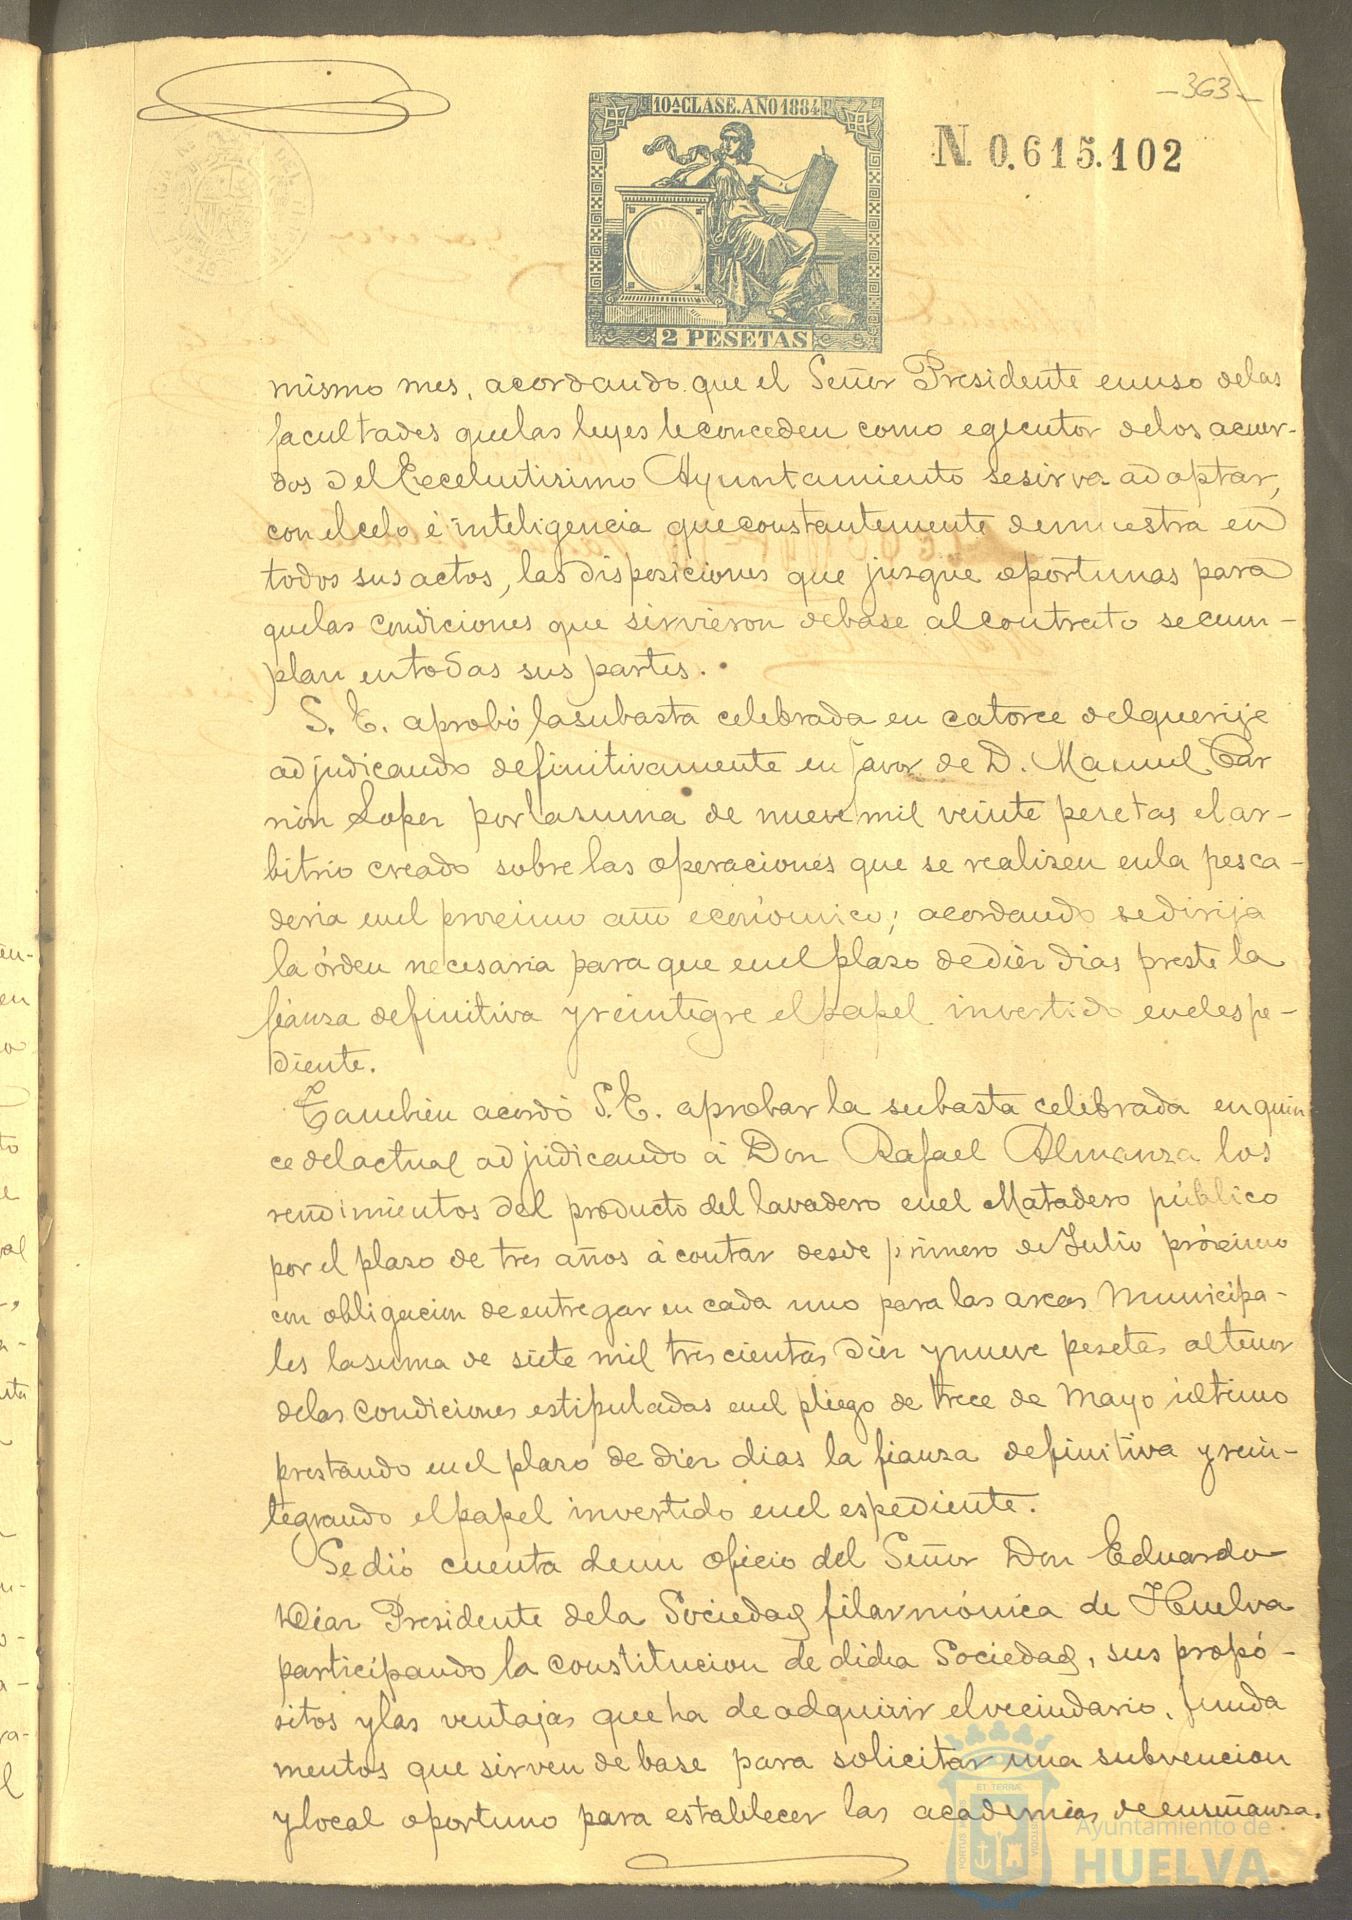 -363-
10ª CLASE. AÑO 1884
N. 0.615.102
2 PESETAS
mismo mes, acordando que el Señor Presidente en uso de las
facultades que las leyes le conceden como egecutor de los acuer-
dos del Excelentisimo Ayuntamiento se sirva adoptar,
con el celo é inteligencia que constantemente demuestra en
todos sus actos, las disposiciones que juzgue oportunas para
que las condiciones que sirvieron de base al contrato se cum-
plan en todas sus partes.
S. E. aprobó la subasta celebrada en catorce del que rije
adjudicando definitivamente en favor de D. Manuel Gar
rión Lopez por la suma de nueve mil veinte pesetas el ar-
bitrio creado sobre las operaciones que se realizen en la pesca-
deria en el proximo año económico; acordando se dirija
la órden necesaria para que en el plazo de diez dias preste la
fianza definitiva y reintegre el papel invertido en el espe-
diente.
Tambien acordó S. E. aprobar la subasta celebrada en quin
ce del actual adjudicando á Don Rafael Almanza los
rendimientos del producto del lavadero en el Matadero público
por el plazo de tres años á contar desde primero de Julio próximo
con obligacion de entregar en cada uno para las arcas Municipa-
les la suma de siete mil trescientas diez y nueve pesetas al tenor
de las condiciones estipuladas en el pliego de trece de Mayo último
prestando en el plazo de diez dias la fianza definitiva y rein-
tegrando el papel invertido en el espediente.
Se dió cuenta de un oficio del Señor Don Eduardo
Diaz Presidente de la Sociedad filarmónica de Huelva
participando la constitucion de dicha Sociedad, sus propó-
sitos y las ventajas que ha de adquirir el vecindario, funda
mentos que sirven de base para solicitar una subvencion
y local oportuno para establecer las academias de enseñanza.
Ayuntamiento de
HUELVA